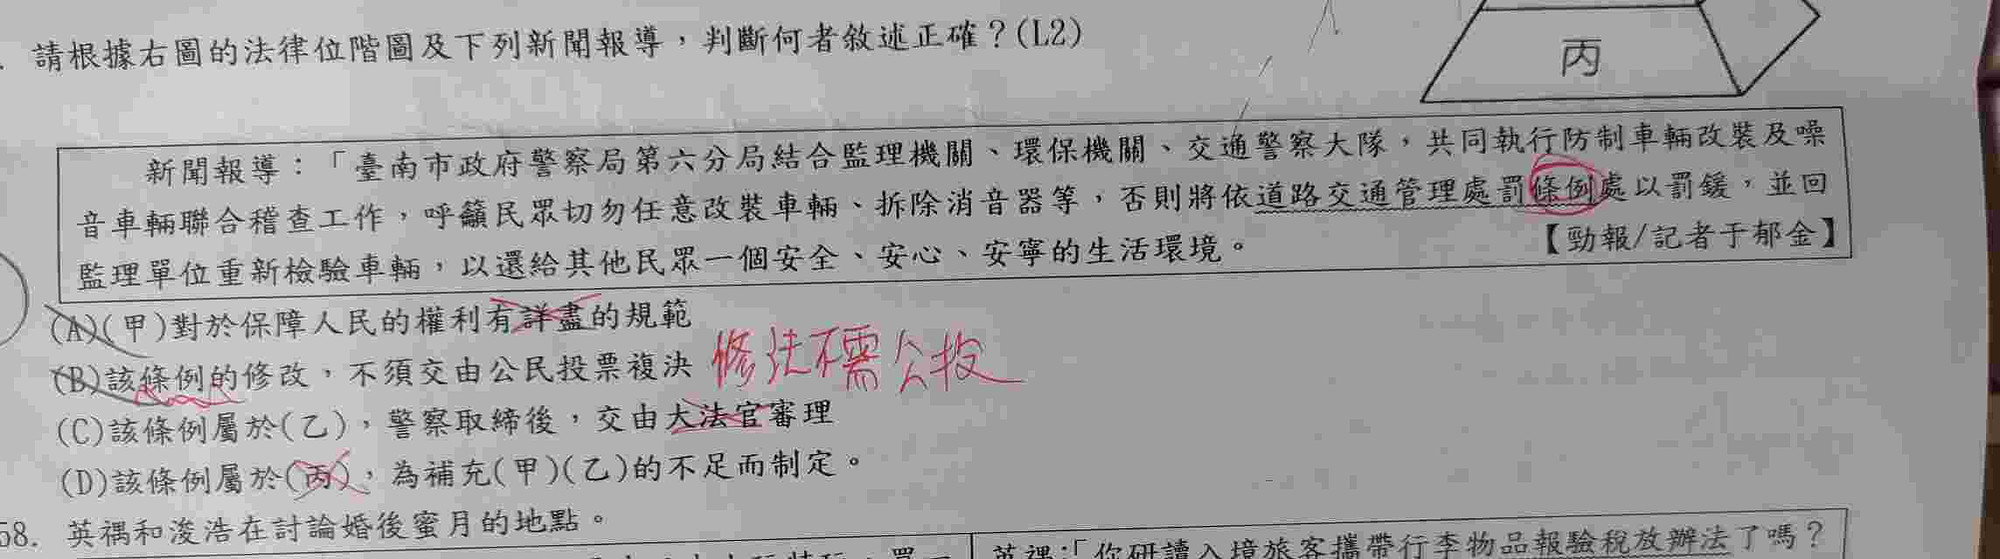 請根據右圖的法律位階圖及下列新聞報導，判斷何者敘述正確？(L2)
丙
新聞報導：「臺南市政府警察局第六分局結合監理機關、環保機關、交通警察大隊，共同執行防制車輛改裝及噪
音車輛聯合稽查工作，呼籲民眾切勿任意改裝車輛、拆除消音器等，否則將依道路交通管理處罰條例處以罰鍰，並回
監理單位重新檢驗車輛，以還給其他民眾一個安全、安心、安寧的生活環境。
【勁報/記者于郁金】
(A)(甲)對於保障人民的權利有詳盡的規範
(B)該條例的修改，不須交由公民投票複決 修法不需公投
(C)該條例屬於(乙)，警察取締後，交由大法官審理
(D)該條例屬於(丙)，為補充(甲)(乙)的不足而制定。
58. 英禑和浚浩在討論婚後蜜月的地點。
：「你研讀入境旅客攜帶行李物品報驗稅放辦法了嗎？